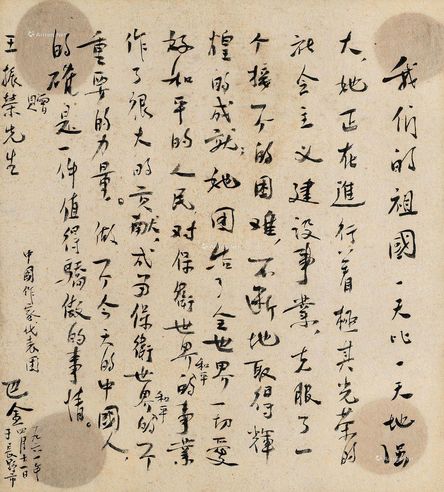 我们的祖國一天比一天地强
大,她正在進行着極其光荣的
社会主义建設事業,克服了一
个接一个的困难,不断地取得輝
煌的成就;她团结了全世界一切爱
好和平的人民对保衛世界和平的事業
作了很大的贡献,成为保衛世界和平的一个
重要的力量。做一个今天的中國人,
的確是一件值得驕傲的事情。
贈
王振榮先生
中國作家代表团
巴金
一九六一年
四月十一日
于長野市